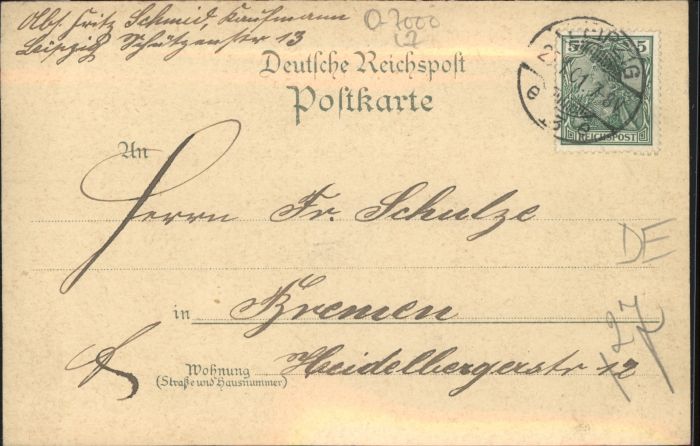 Abs. Fritz Schmid, Kaufmann
Leipzig Schützenstr 13
O 7000
L2
Deutsche Reichspost
Postkarte
5 5
REICHSPOST
LEIPZIG
An
Herrn Fr. Schulze
DE
in Bremen
Wohnung
(Straße und Hausnummer)
Heidelbergerstr 12